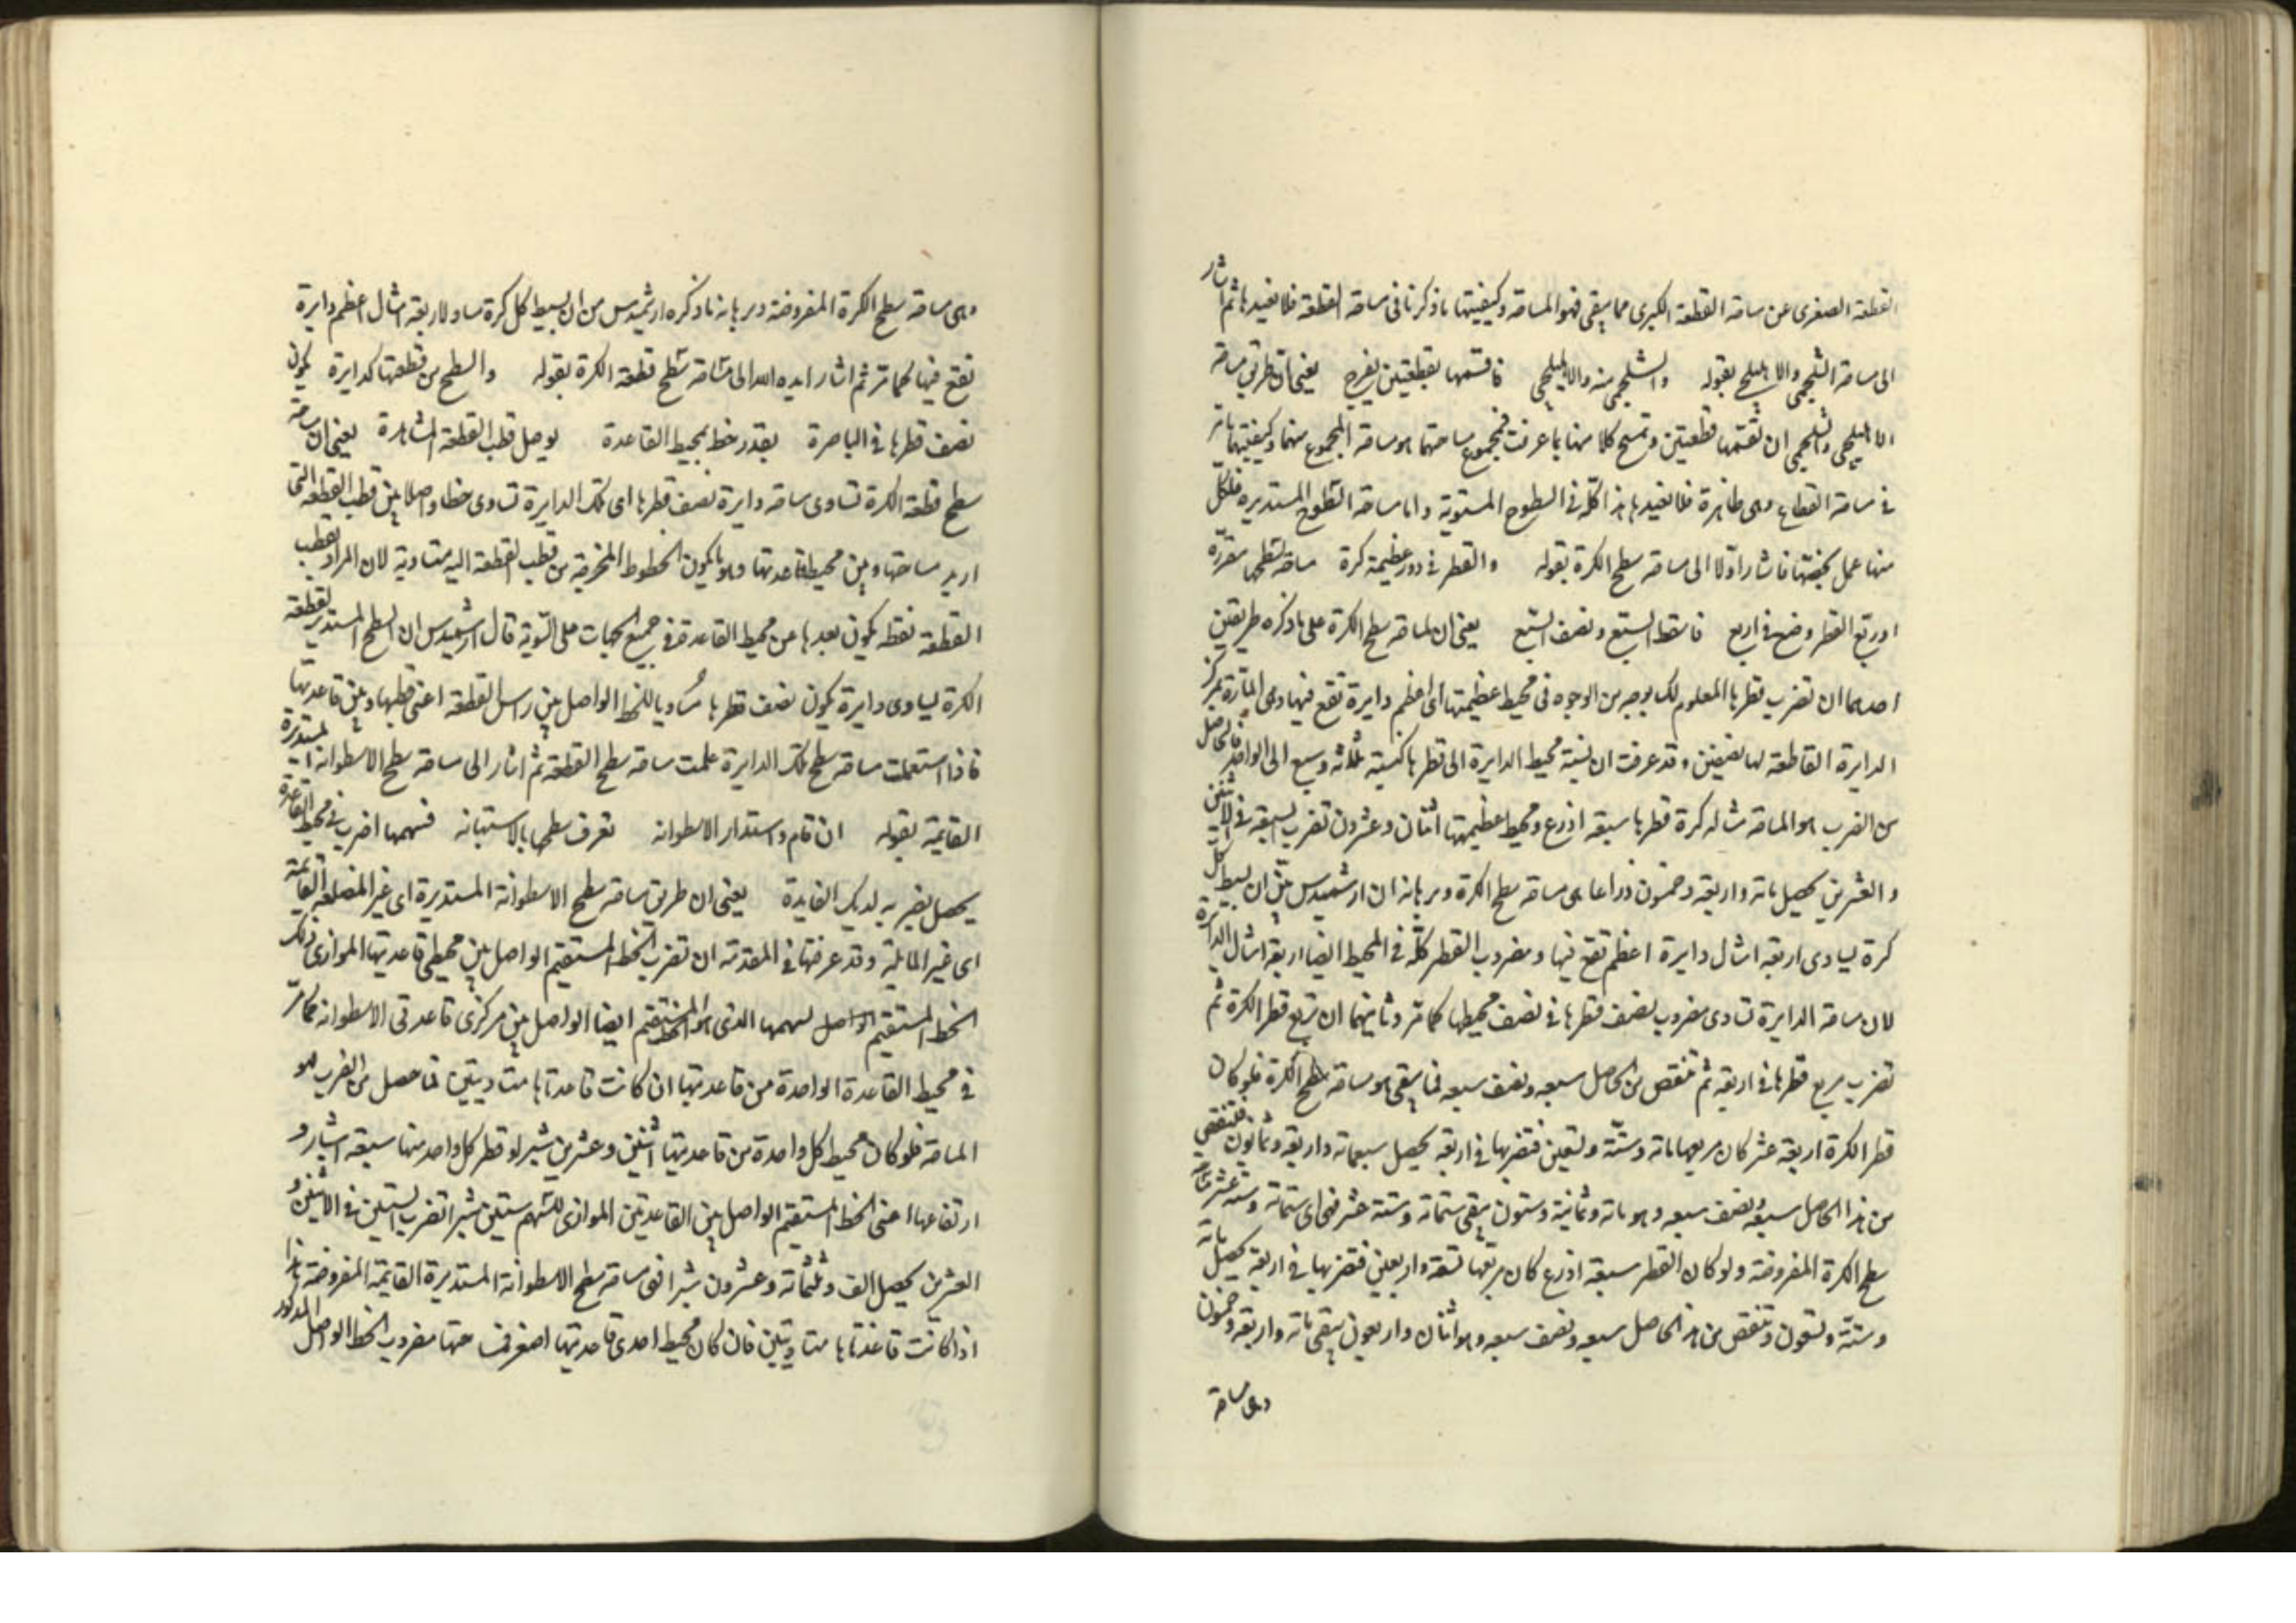 القطعة الصغرى عن مساحة القطعة الكبرى مما يبقى فهو المساحة وكيفيتها ما ذكرنا فى مساحة القطعة فلا نفيدها ثم اشار
الى مساحة الشلجمى والاهليلجى بقوله والشلجمى منه والاهليلجى فاقسمها بقطعتين يفرج يعنى ان طريق مساحة
الاهليلجى والشلجمى ان تقسمها قطعتين وتمسح كلا منهما بما عرفت فمجموع مساحتهما هو مساحة المجموع منهما وكيفيتها مامر
فى مساحة القطاع وهى ظاهرة فلا نفيدها هذا كله فى السطوح المستوية واما مساحة السطوح المستديرة فلكل
منها عمل يختصها فاشار اولا الى مساحة سطح الكرة بقوله والقطر فى دور عظيمة كرة مساحة لسطحها مقررة
او ربع القطر وضع فى اربع فاسقط السبع ونصف السبع يعنى ان لمساحة سطح الكرة على ما ذكره طريقين
احدهما ان تضرب قطرها المعلوم لك بوجه من الوجوه فى محيط عظيمتها اى اعظم دايرة تقع فيها وهى المارة بمركز
الدايرة القاطعة لها بنصفين وقد عرفت ان نسبة محيط الدايرة الى قطرها كنسبة ثلاثة وسبع الى الواحد فالحاصل
من الضرب هو المساحة مثاله كرة قطرها سبعة اذرع ومحيط عظيمتها اثنان وعشرون تضرب السبعة فى الاثنين
والعشرين يحصل مائة واربعة وخمسون ذراعا هى مساحة سطح الكرة وبرهانه ان ارشميدس بين ان بسيط كل
كرة يساوى اربعة امثال دايرة اعظم تقع فيها ومضروب القطر كله فى المحيط ايضا اربعة امثال الدايرة
لان مساحة الدايرة تساوى مضروب نصف قطرها فى نصف محيطها كما مر وثانيهما ان تربع قطر الكرة ثم
تضرب مربع قطرها فى اربعة ثم تنقص من الحاصل سبعه ونصف سبعه فما يبقى هو مساحة سطح الكرة فلو كان
قطر الكرة اربعة عشر كان مربعها مائة وستة وتسعين فتضربها فى اربعة يحصل سبعمائة واربعة وثمانون فتنقص
من هذا الحاصل سبعه ونصف سبعه وهو مائة وثمانية وستون يبقى ستمائة وستة عشر فهى اى ستمائة وستة عشر مساحة
سطح الكرة المفروضة ولو كان القطر سبعة اذرع كان مربعها تسعة واربعين فتضربها فى اربعة يحصل مائة
وستة وتسعون وتنقص من هذا الحاصل سبعه ونصف سبعه وهو اثنان واربعون يبقى مائة واربعة وخمسون
وهى مساحة
وهى مساحة سطح الكرة المفروضة وبرهانه ما ذكره ارشميدس من ان بسيط كل كرة مساو لاربعة امثال اعظم دايرة
تقع فيها كما مر ثم اشار ايده الله الى مساحة سطح قطعة الكرة بقوله والسطح من قطعتها كدايرة يكون
نصف قطرها فى الباصرة بقدر خط بمحيط القاعدة يوصل قطب القطعة المشاهدة يعنى ان مساحة
سطح قطعة الكرة تساوى مساحة دايرة نصف قطرها اى تلك الدايرة تساوى خطا واصلا بين قطب القطعة التى
اريد مساحتها وبين محيط قاعدتها وهو ما يكون الخطوط المخرجة من قطب القطعة اليه متساوية لان المراد بقطب
القطعة نقطة يكون بعدها عن محيط القاعدة فى جميع الجهات على السوية قال ارشميدس ان السطح المستدير لقطعة
الكرة يساوى دايرة يكون نصف قطرها مساويا للخط الواصل بين راس القطعة اعنى قطبها وبين قاعدتها
فاذا استعملت مساحة سطح تلك الدايرة علمت مساحة سطح القطعة ثم اشار الى مساحة سطح الاسطوانة المستديرة
القايمة بقوله ان قام واستدار الاسطوانه تعرف سطحها بالاستبانه فسهمها اضرب فى محيط القاعدة
يحصل بضربه لديك الفايدة يعنى ان طريق مساحة سطح الاسطوانة المستديرة اى غير المضلعة القايمة
اى غير المايلة وقد عرفتها فى المقدمة ان تضرب الخط المستقيم الواصل بين محيطى قاعدتيها الموازى ذلك
الخط المستقيم الواصل لسهمها الذى هو الخط المستقيم ايضا الواصل بين مركزى قاعدتى الاسطوانة كما مر
فى محيط القاعدة الواحدة من قاعدتيها ان كانت قاعدتاها متساويتين فما حصل من الضرب هو
المساحة فلو كان محيط كل واحدة من قاعدتيها اثنين وعشرين شبرا وقطر كل واحد منها سبعة اشبار و
ارتفاعها اعنى الخط المستقيم الواصل بين القاعدتين الموازى للسهم ستين شبرا تضرب الستين فى الاثنين و
العشرين يحصل الف وثلثمائة وعشرون شبرا فهى مساحة سطح الاسطوانة المستديرة القايمة المفروضة هذا
اذا كانت قاعدتاها متساويتين فان كان محيط احدى قاعدتيها اصغر فنصف مضروب الخط الواصل المذكور